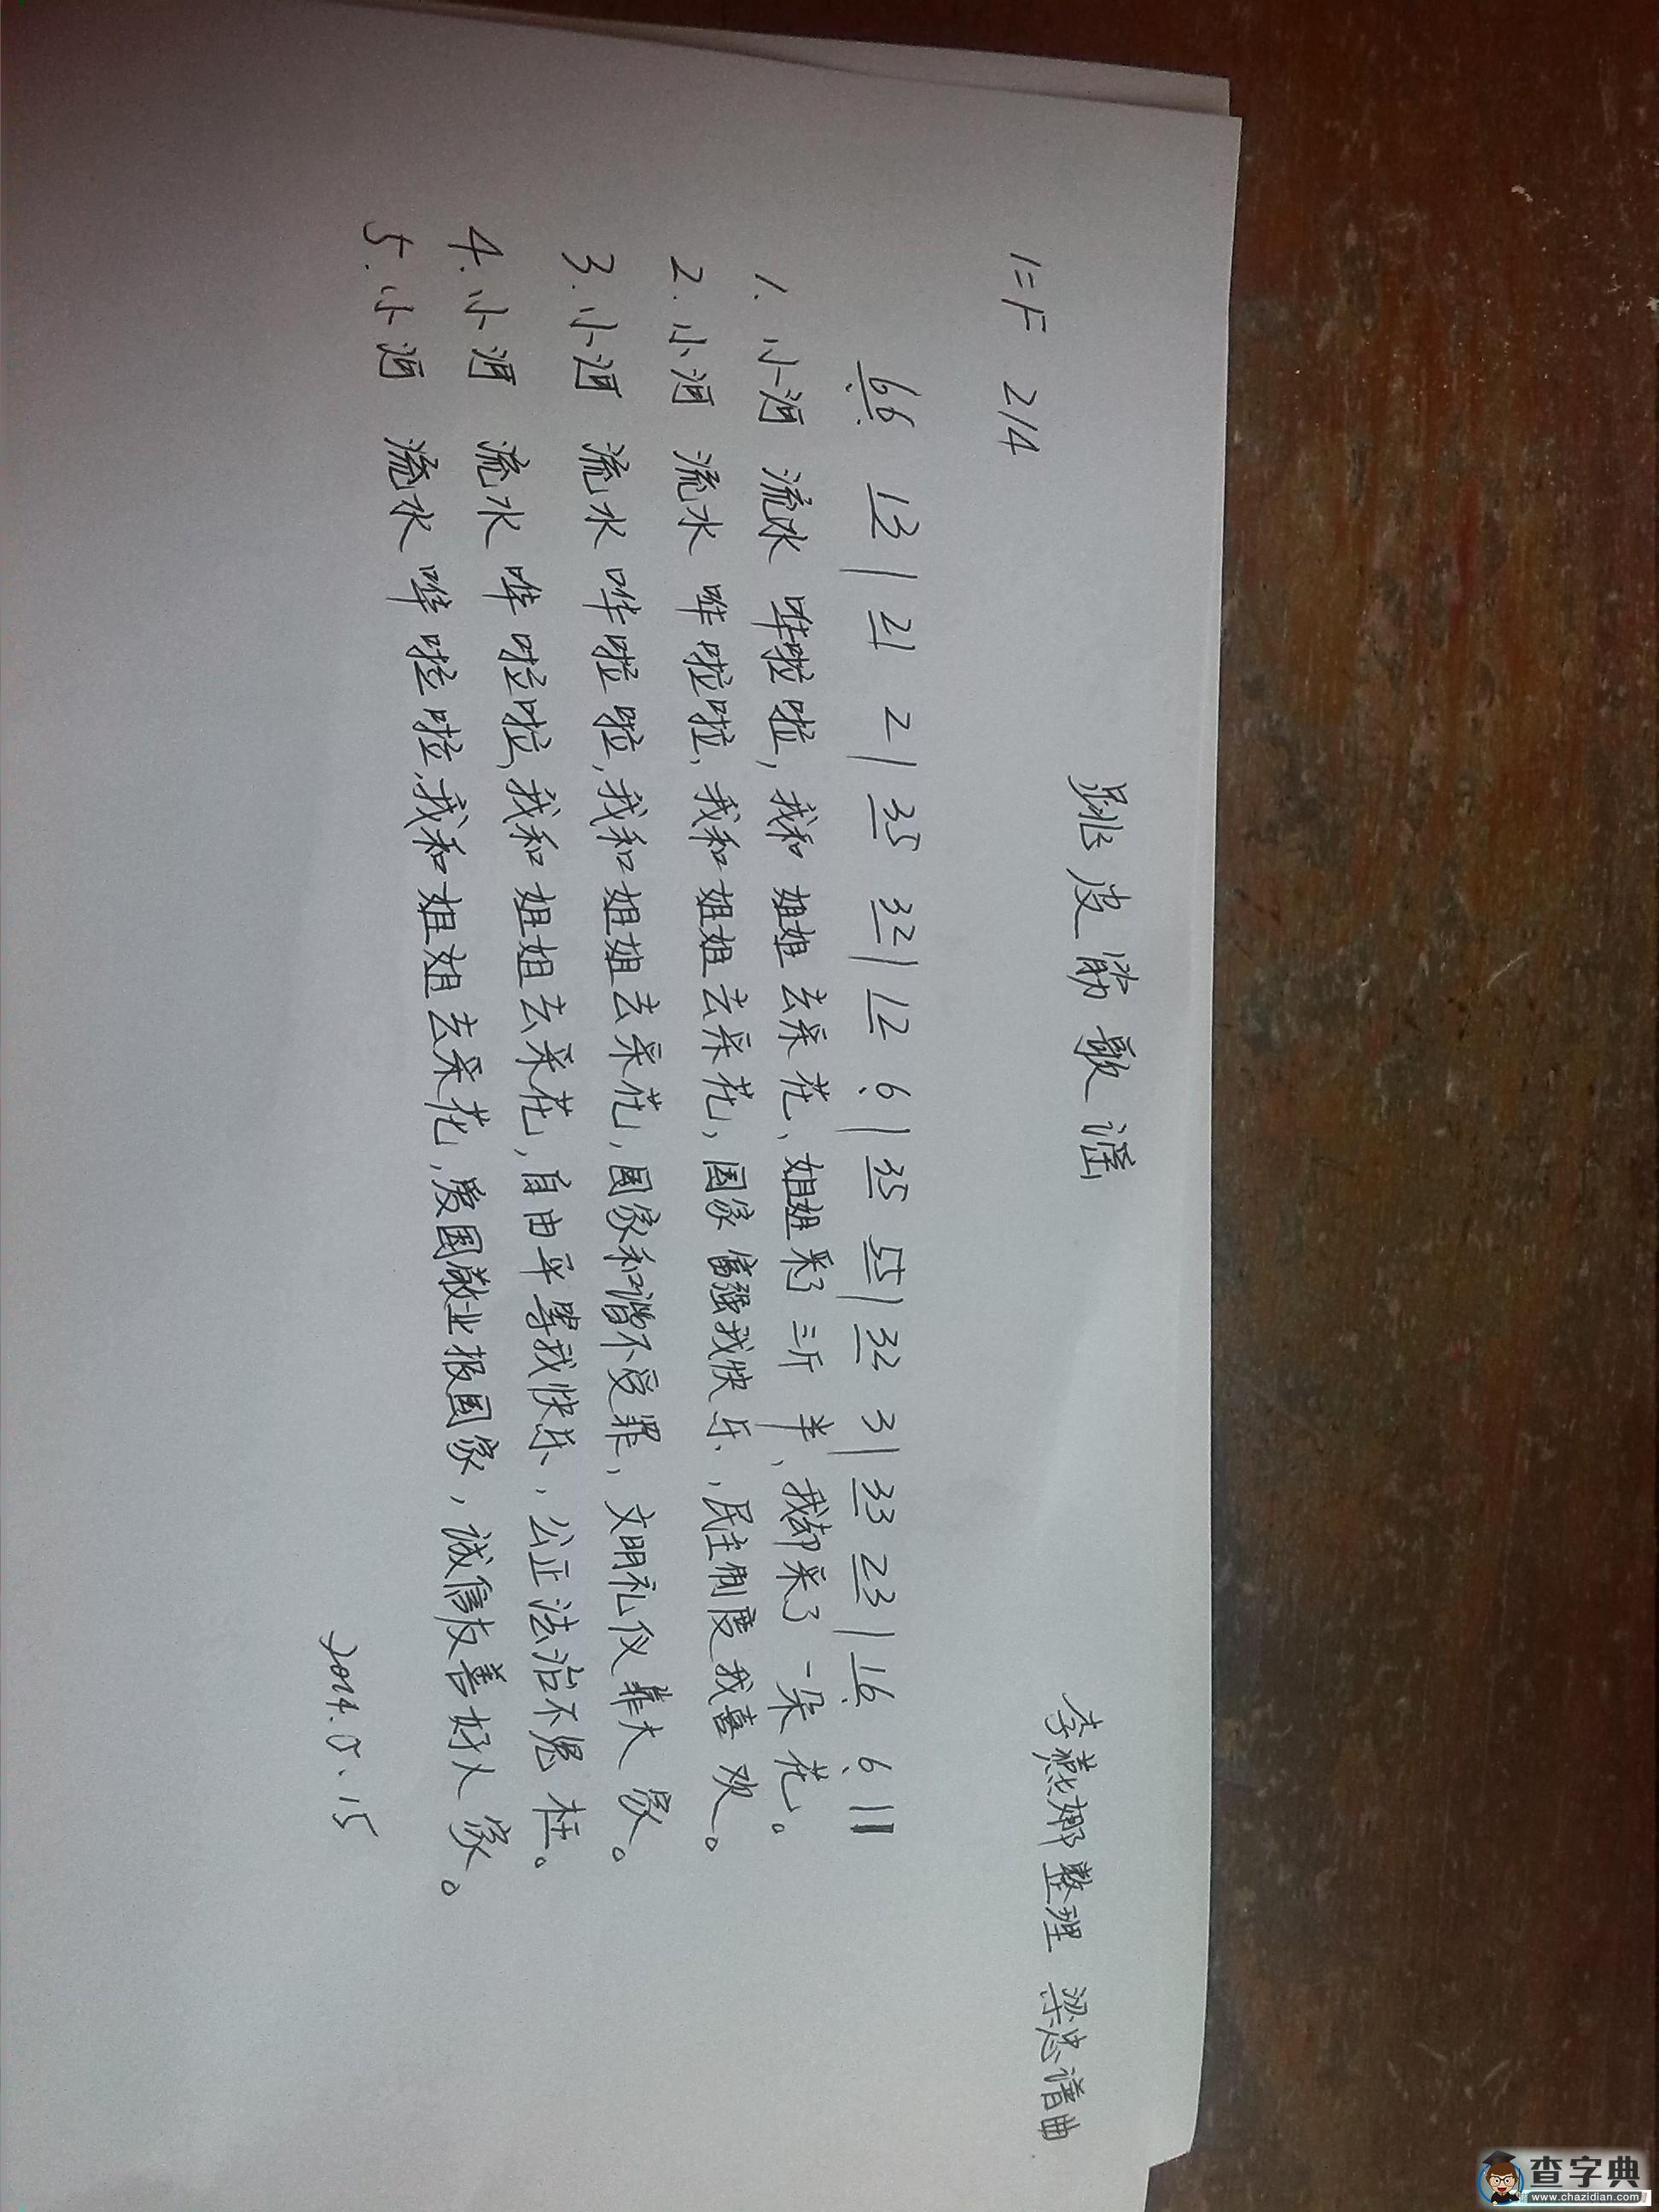 跳皮筋歌谣
李燕娜整理 梁忠谱曲
1=F 2/4
66 13 | 21 2 | 35 32 | 12 6 | 35 55 | 32 3 | 33 23 | 16 6 ‖
1. 小河 流水 哗啦啦，我和 姐姐 去采花、姐姐采了三斤半、我却采了一朵花。
2. 小河 流水 哗啦啦、我和姐姐去采花，国家富强我快乐，民主制度我喜欢。
3. 小河 流水 哗啦啦，我和姐姐去采花，国家和谐不受罪，文明礼仪靠大家。
4. 小河 流水 哗啦啦，我和姐姐去采花，自由平等我快乐，公正法治不冤枉。
5. 小河 流水 哗啦啦，我和姐姐去采花，爱国敬业报国家，诚信友善好人家。
15
查字典
www.chazidian.com